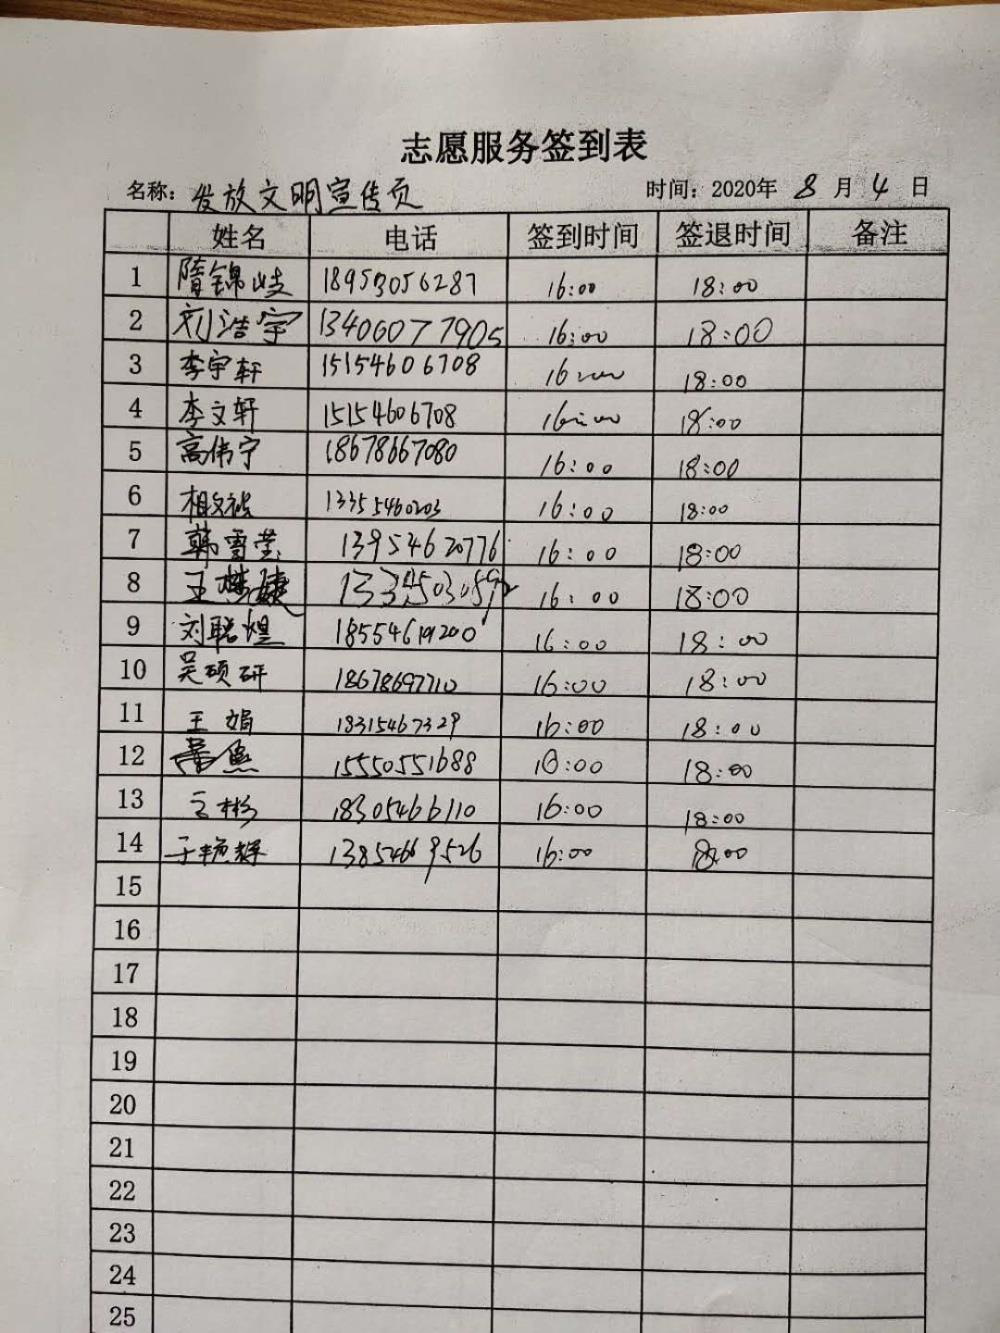 志愿服务签到表
名称：发放文明宣传页 时间：2020年 8 月 4 日
姓名 电话 签到时间 签退时间 备注
1 隋锦岐 18953056287 16:00 18:00
2 刘浩宇 13406077905 16:00 18:00
3 李宇轩 15154606708 16:00 18:00
4 李文轩 15154606708 16:00 18:00
5 高伟宁 18678667080 16:00 18:00
6 13355460203 16:00 18:00
7 韩雪莹 13954620776 16:00 18:00
8 王 16:00 18:00
9 刘聪煜 18554619200 16:00 18:00
10 吴硕研 18678697710 16:00 18:00
11 王娟 18315467329 16:00 18:00
12 15550551688 16:00 18:00
13 王彬 18305466110 16:00 18:00
14 于艳辉 13854669526 16:00 18:00
15
16
17
18
19
20
21
22
23
24
25